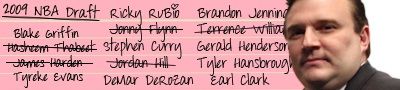 2009 NBA Draft
Blake Griffin
Hasheem Thabeet
James Harden
Tyreke Evans
Ricky Rubio
Jonny Flynn
Stephen Curry
Jordan Hill
DeMar DeRozan
Brandon Jenning
Terrence William
Gerald Henderson
Tyler Hansbroug
Earl Clark